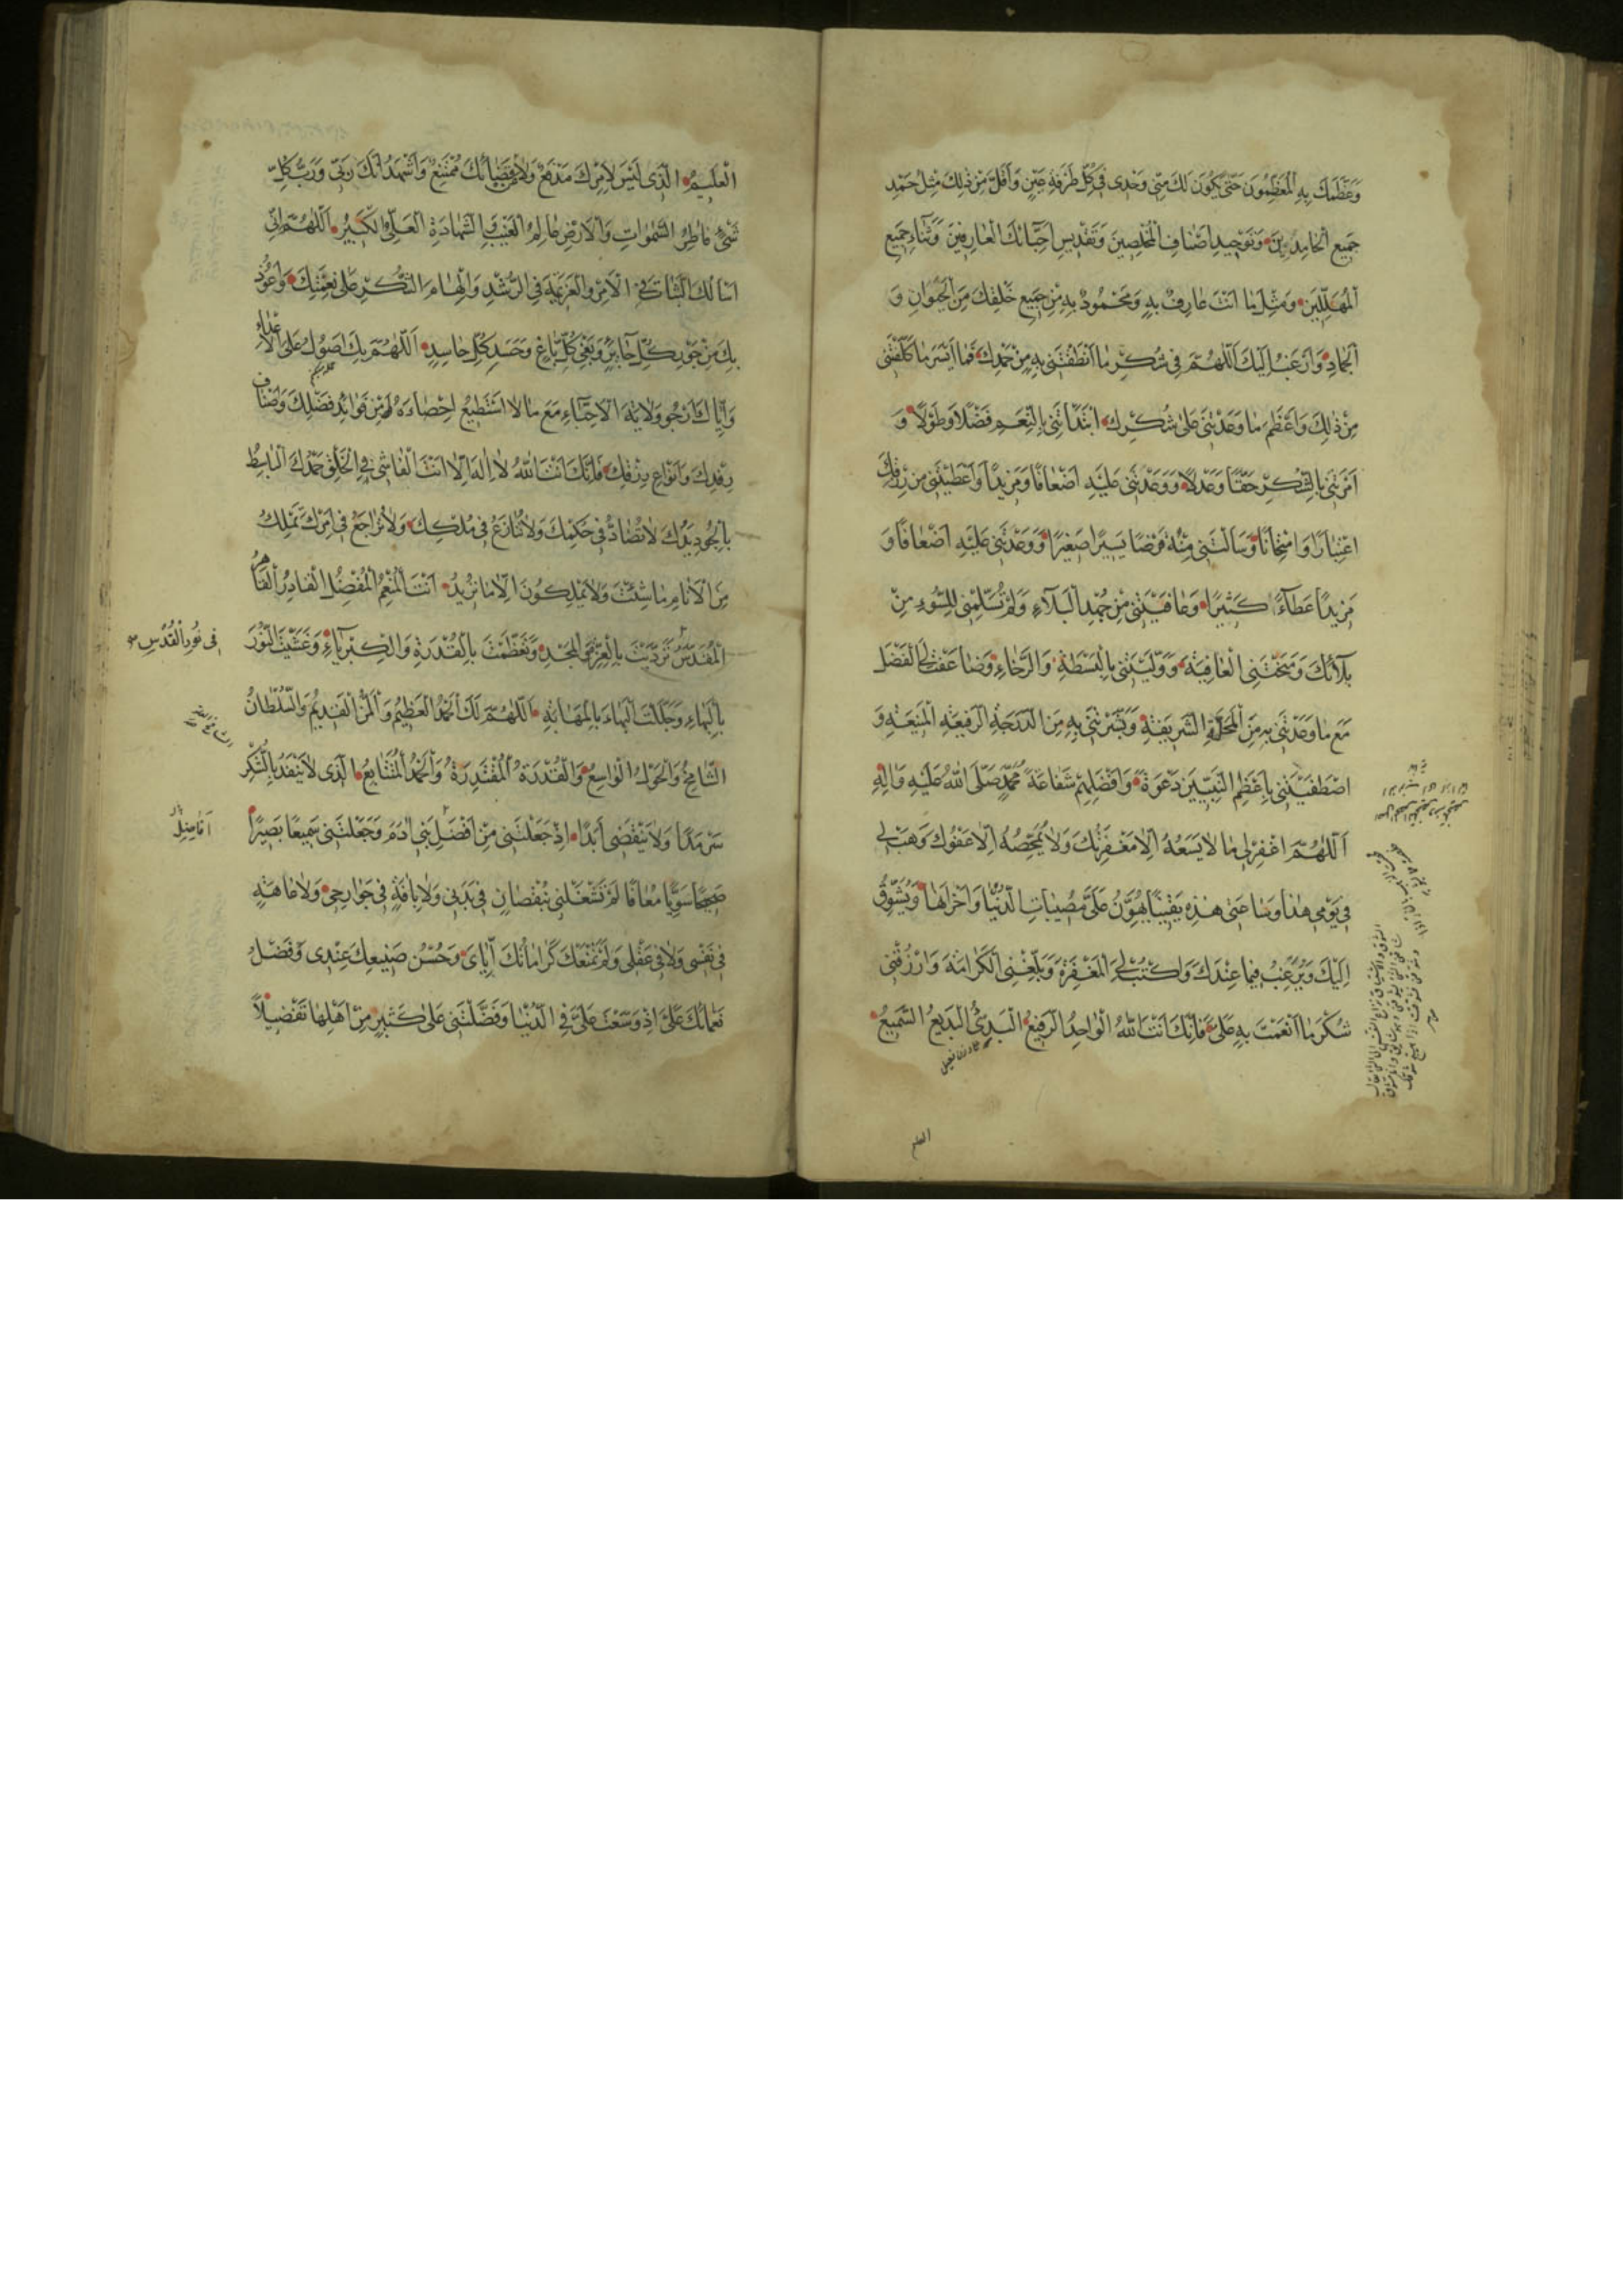 وَعَظَّمَكَ بِهِ الْمُعَظِّمُونَ حَتّٰى يَكُونَ لَكَ مِنّى وَحْدى فى كُلِّ طَرْفَةِ عَيْنٍ وَاَقَلَّ مِنْ ذٰلِكَ مِثْلُ حَمْدِ
جَميعِ الْحٰامِدينَ وَتَوْحيدِ اَصْنٰافِ الْمُخْلِصينَ وَتَقْديسِ اَحِبّٰائِكَ الْعٰارِفينَ وَثَنٰاءِ جَميعِ
الْمُهَلِّلينَ وَمِثْلِ مٰا اَنْتَ عٰارِفٌ بِهِ وَمَحْمُودٌ بِهِ مِنْ جَميعِ خَلْقِكَ مِنَ الْحَيَوٰانِ وَ
الْجَمٰادِ وَاَرْغَبُ اِلَيْكَ اَللّٰهُمَّ فى شُكْرِ مٰا اَنْطَقْتَنى بِهِ مِنْ حَمْدِكَ فَمٰا اَيْسَرَ مٰا كَلَّفْتَنى
مِنْ ذٰلِكَ وَاَعْظَمَ مٰا وَعَدْتَنى عَلٰى شُكْرِكَ ابْتَدَاْتَنى بِالنِّعَمِ فَضْلًا وَطَوْلًا وَ
اَمَرْتَنى بِالشُّكْرِ حَقًّا وَعَدْلًا وَوَعَدْتَنى عَلَيْهِ اَضْعٰافًا وَمَزيدًا وَاَعْطَيْتَنى مِنْ رِزْقِكَ
اعْتِبٰارًا وَامْتِحٰانًا وَسَاَلْتَنى مِنْهُ قَرْضًا يَسيرًا صَغيرًا وَوَعَدْتَنى عَلَيْهِ اَضْعٰافًا وَ
مَزيدًا عَطٰاءً كَثيرًا وَعٰافَيْتَنى مِنْ جُهْدِ الْبَلٰاءِ وَلَمْ تُسَلِّمْنى لِلسُّوءِ مِنْ
بَلٰائِكَ وَمَنَحْتَنِى الْعٰافِيَةَ وَوَلَّيْتَنى بِالْبَسْطَةِ وَالرَّخٰاءِ وَضٰاعَفْتَ لِىَ الْفَضْلَ
مَعَ مٰا وَعَدْتَنى بِهِ مِنَ الْمَحَلَّةِ الشَّريفَةِ وَبَشَّرْتَنى بِهِ مِنَ الدَّرَجَةِ الرَّفيعَةِ الْمَنيعَةِ وَ
اصْطَفَيْتَنى بِاَعْظَمِ النَّبِيّينَ دَعْوَةً وَاَفْضَلِهِمْ شَفٰاعَةً مُحَمَّدٍ صَلَّى اللّٰهُ عَلَيْهِ وَاٰلِهِ
اَللّٰهُمَّ اغْفِرْ لى مٰا لٰا يَسَعُهُ اِلّٰا مَغْفِرَتُكَ وَلٰا يُمَحِّصُهُ اِلّٰا عَفْوُكَ وَهَبْ لى
فى يَوْمى هٰذٰا وَسٰاعَتى هٰذِهِ يَقينًا يُهَوِّنُ عَلَىَّ مُصيبٰاتِ الدُّنْيٰا وَاَحْزٰانَهٰا وَيُشَوِّقُ
اِلَيْكَ وَيُرَغِّبُ فيمٰا عِنْدَكَ وَاكْتُبْ لِىَ الْمَغْفِرَةَ وَبَلِّغْنِى الْكَرٰامَةَ وَارْزُقْنى
شُكْرَ مٰا اَنْعَمْتَ بِهِ عَلَىَّ فَاِنَّكَ اَنْتَ اللّٰهُ الْوٰاحِدُ الرَّفيعُ الْبَدِىءُ الْبَديعُ السَّميعُ
العلیم
الْعَليمُ الَّذى لَيْسَ لِاَمْرِكَ مَدْفَعٌ وَلٰا عَنْ قَضٰائِكَ مُمْتَنِعٌ وَاَشْهَدُ اَنَّكَ رَبّى وَرَبُّ كُلِّ
شَىْءٍ فٰاطِرُ السَّمٰوٰاتِ وَالْاَرْضِ عٰالِمُ الْغَيْبِ وَالشَّهٰادَةِ الْعَلِىُّ الْكَبيرُ اَللّٰهُمَّ اِنّى
اَسْاَلُكَ الثَّبٰاتَ فِى الْاَمْرِ وَالْعَزيمَةَ فِى الرُّشْدِ وَاِلْهٰامَ الشُّكْرِ عَلٰى نِعْمَتِكَ وَاَعُوذُ
بِكَ مِنْ جَوْرِ كُلِّ جٰائِرٍ وَبَغْىِ كُلِّ بٰاغٍ وَحَسَدِ كُلِّ حٰاسِدٍ اَللّٰهُمَّ بِكَ اَصُولُ عَلَى الْاَعْدٰاءِ
وَاِيّٰاكَ اَرْجُو وَلٰايَةَ الْاَحِبّٰاءِ مَعَ مٰا لٰا اَسْتَطيعُ اِحْصٰاءَهُ مِنْ فَوٰائِدِ فَضْلِكَ وَاَصْنٰافِ
رِفْدِكَ وَاَنْوٰاعِ رِزْقِكَ فَاِنَّكَ اَنْتَ اللّٰهُ لٰا اِلٰهَ اِلّٰا اَنْتَ الْفٰاشى فِى الْخَلْقِ حَمْدُكَ الْبٰاسِطُ
بِالْجُودِ يَدُكَ لٰا تُضٰادُّ فى حُكْمِكَ وَلٰا تُنٰازَعُ فى مُلْكِكَ وَلٰا تُرٰاجَعُ فى اَمْرِكَ تَمْلِكُ
مِنَ الْاَنٰامِ مٰا شِئْتَ وَلٰا يَمْلِكُونَ اِلّٰا مٰا تُريدُ اَنْتَ الْمُنْعِمُ الْمُفْضِلُ الْقٰادِرُ الْقٰاهِرُ
الْمُقَدَّسُ تَرَدَّيْتَ بِالْعِزِّ وَالْمَجْدِ وَتَعَظَّمْتَ بِالْقُدْرَةِ وَالْكِبْرِيٰاءِ وَغَشَّيْتَ النُّورَ
فى نُورِ الْقُدْسِ
بِالْبَهٰاءِ وَجَلَّلْتَ الْبَهٰاءَ بِالْمَهٰابَةِ اَللّٰهُمَّ لَكَ الْحَمْدُ الْعَظيمُ وَالْمَنُّ الْقَديمُ وَالسُّلْطٰانُ
الشّٰامِخُ وَالْحَوْلُ الْوٰاسِعُ وَالْقُدْرَةُ الْمُقْتَدِرَةُ وَالْحَمْدُ الْمُتَتٰابِعُ الَّذى لٰا يَنْفَدُ بِالشُّكْرِ
سَرْمَدًا وَلٰا يَنْقَضى اَبَدًا اِذْ جَعَلْتَنى مِنْ اَفْضَلِ بَنى اٰدَمَ وَجَعَلْتَنى سَميعًا بَصيرًا
اَفٰاضِلِ
صَحيحًا سَوِيًّا مُعٰافًا لَمْ تَشْغَلْنى بِنُقْصٰانٍ فى بَدَنى وَلٰا بِاٰفَةٍ فى جَوٰارِحى وَلٰا عٰاهَةٍ
فى نَفْسى وَلٰا فى عَقْلى وَلَمْ تَمْنَعْكَ كَرٰامٰاتُكَ اِيّٰاىَ وَحُسْنُ صَنيعِكَ عِنْدى وَفَضْلُ
نَعْمٰائِكَ عَلَىَّ اِذْ وَسَّعْتَ عَلَىَّ فِى الدُّنْيٰا وَفَضَّلْتَنى عَلٰى كَثيرٍ مِنْ اَهْلِهٰا تَفْضيلًا